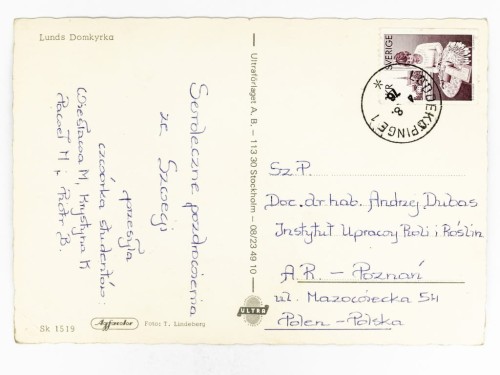 Lunds Domkyrka
Serdeczne pozdrowienia
ze Szwecji
przesyła
czwórka studentów:
Wiesława M, Krystyna K
Paweł M i Piotr B.
Sk 1519
Agfacolor
Foto: T. Lindeberg
Ultraförlaget A. B. – 113 30 Stockholm – 08/23 49 10
ULTRA
SVERIGE
LÖDDEKÖPINGE 1
Sz.P.
Doc. dr. hab. Andrzej Dubas
Instytut Uprawy Roli i Roślin
A.R. – Poznań
ul. Mazowiecka 54
Polen – Polska